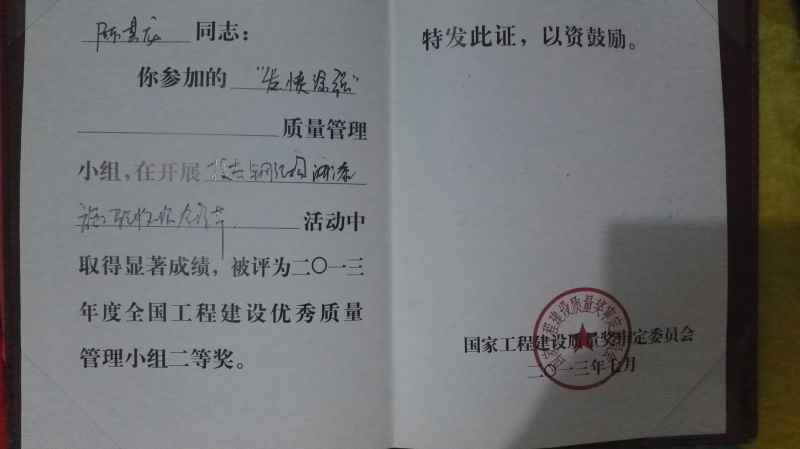 同志：
你参加的
质量管理
小组，在开展
活动中
取得显著成绩，被评为二〇一三
年度全国工程建设优秀质量
管理小组二等奖。
特发此证，以资鼓励。
国家工程建设质量奖审定委员会
二〇一三年七月
国家工程建设质量奖审定委员会